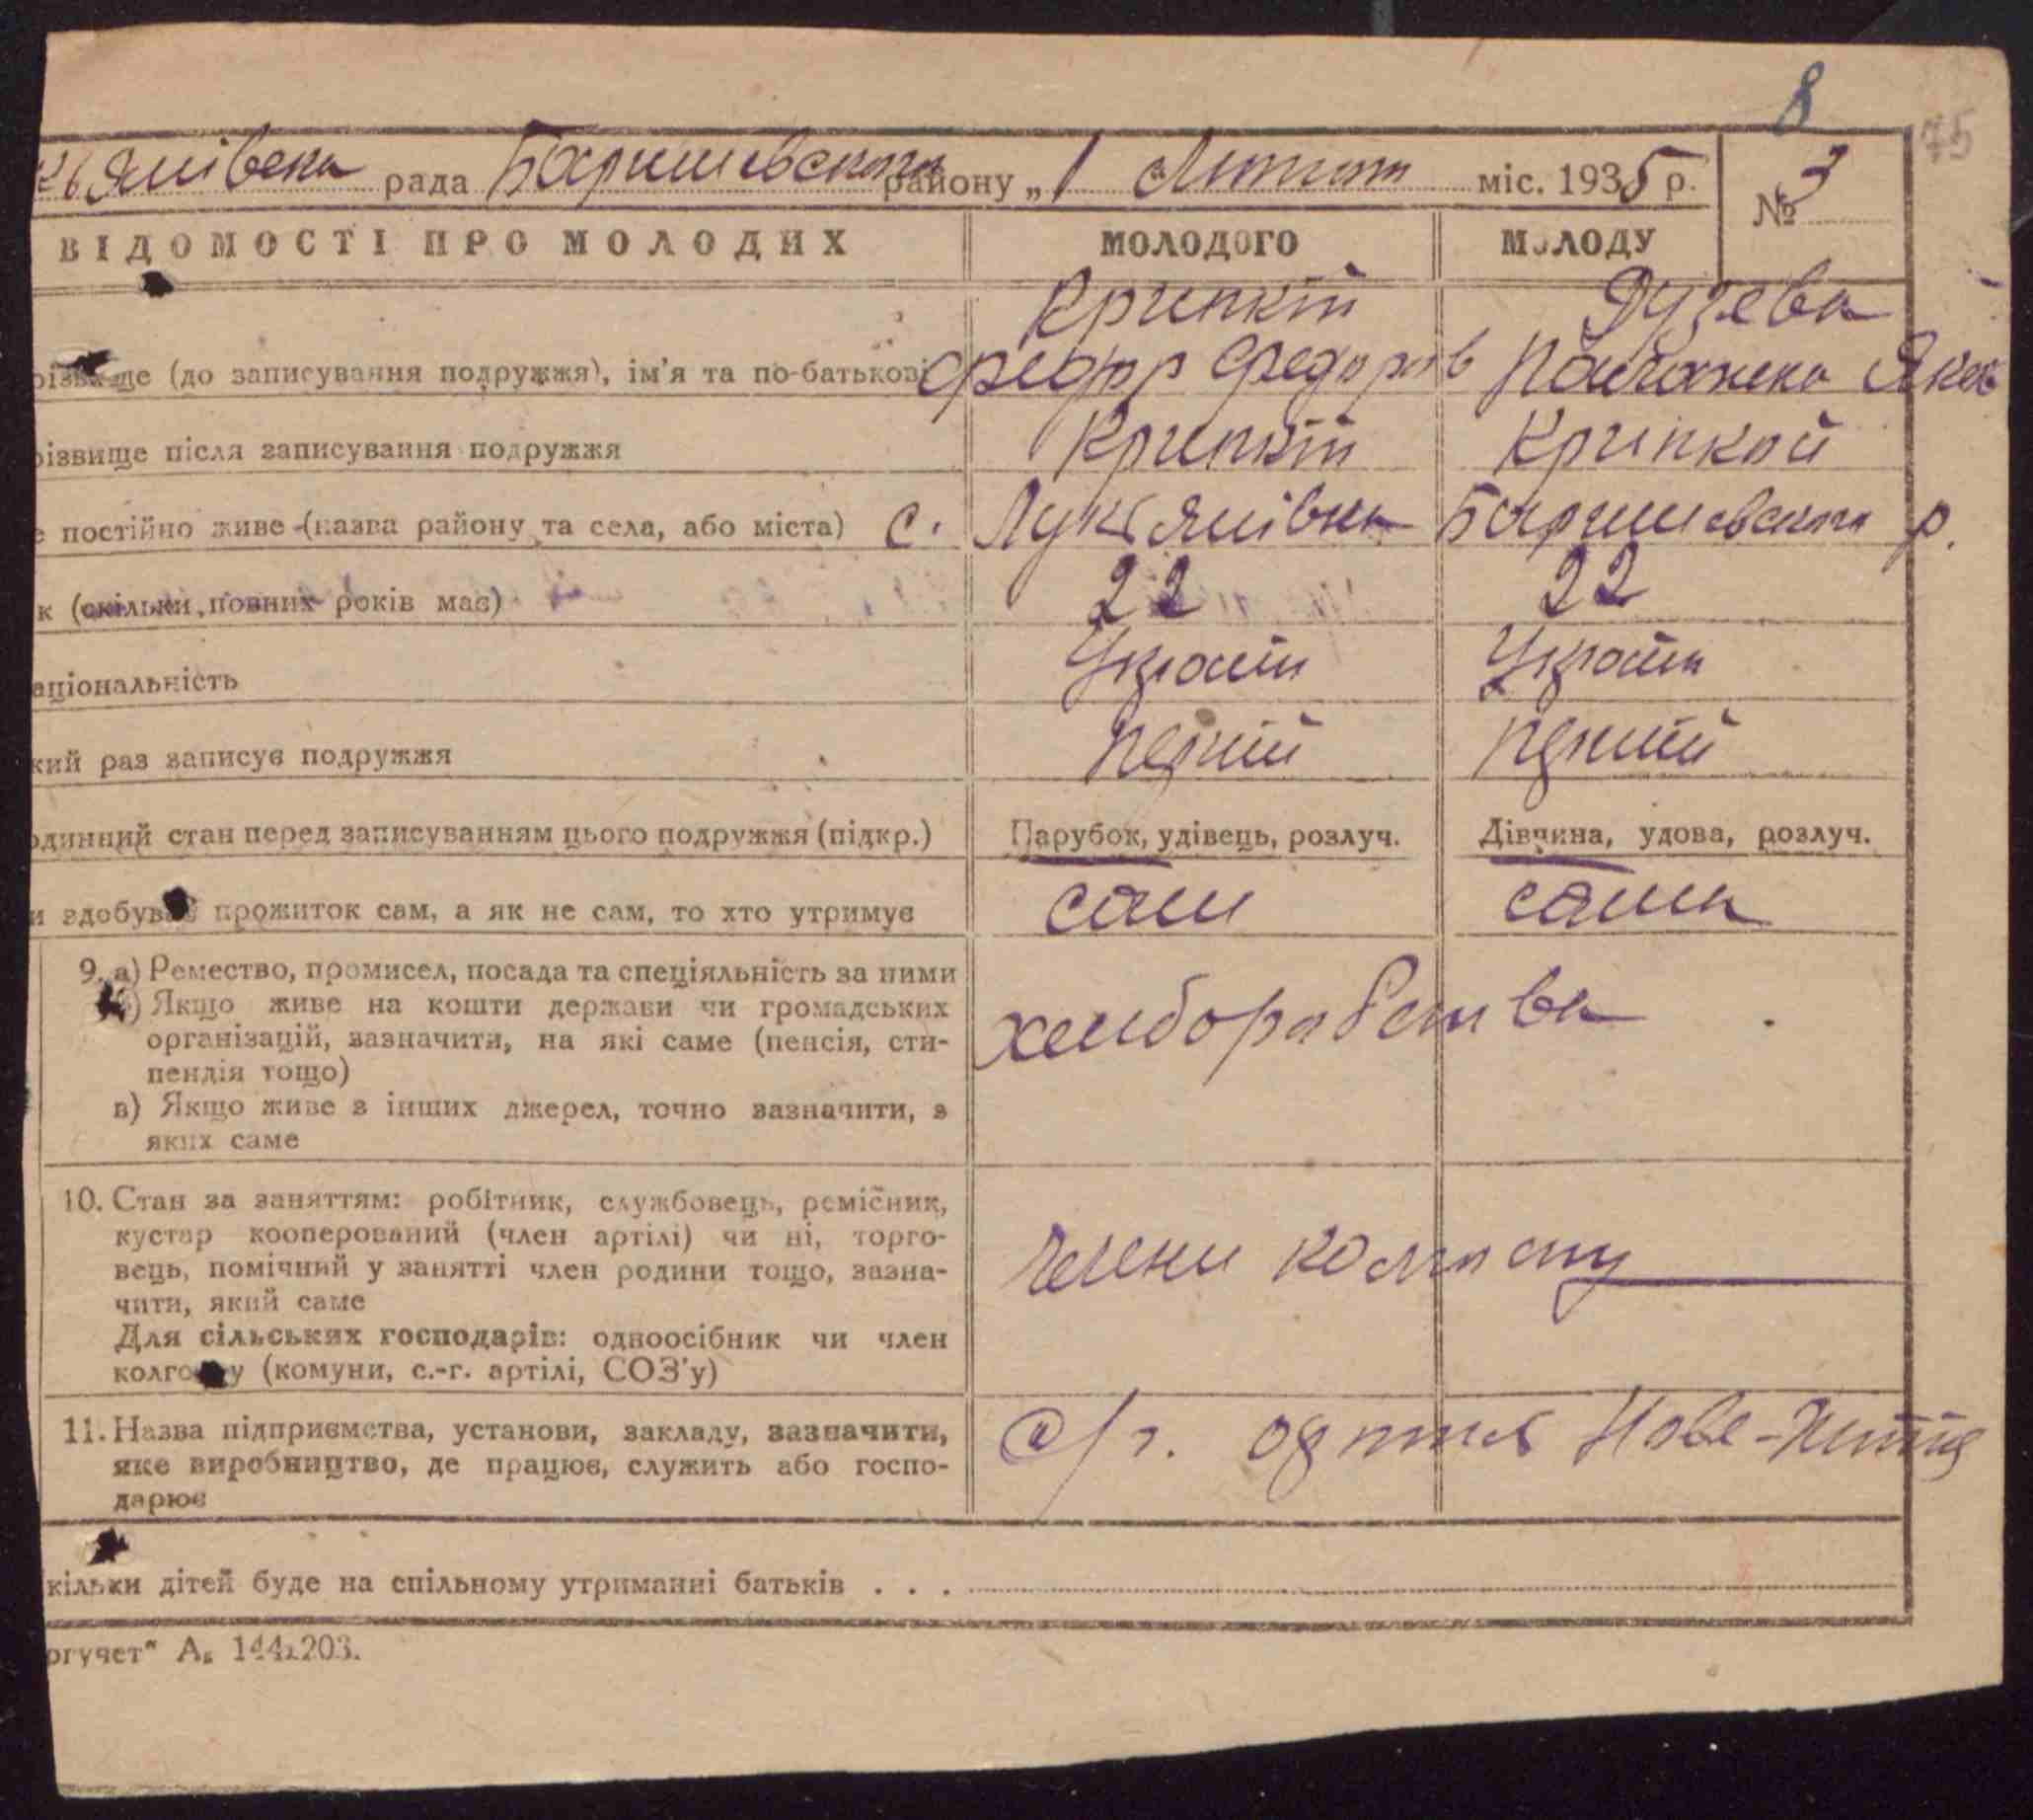 8
75
рада Баришевського району „1 Лютого міс. 1935 р.
№ 3
ВІДОМОСТІ ПРО МОЛОДИХ МОЛОДОГО МОЛОДУ
Крипкій
різвище (до записування подружжя), ім'я та по-батькові Федор Федоров Яков
різвище після записування подружжя Крипкій Крипкой
е постійно живе (назва району та села, або міста) с. Лукьянівка Баришевского р.
к (скільки повних років має) 22 22
аціональність Україн Україн
кий раз записує подружжя
одинний стан перед записуванням цього подружжя (підкр.) Парубок, удівець, розлуч. Дівчина, удова, розлуч.
и здобував прожиток сам, а як не сам, то хто утримує сам сама
9. а) Ремество, промисел, посада та спеціяльність за ними
б) Якщо живе на кошти держави чи громадських
організацій, зазначити, на які саме (пенсія, сти-
пендія тощо)
в) Якщо живе з інших джерел, точно зазначити, з
яких саме
10. Стан за заняттям: робітник, службовець, ремісник,
кустар кооперований (член артілі) чи ні, торго-
вець, помічний у занятті член родини тощо, зазна-
чити, який саме
Для сільських господарів: одноосібник чи член
колгоспу (комуни, с.-г. артілі, СОЗ'у)
члени колгоспу
11. Назва підприємства, установи, закладу, зазначити,
яке виробництво, де працює, служить або госпо-
дарює
с/г. Нове-Життя
кільки дітей буде на спільному утриманні батьків . . .
ргучет" А₅ 144х203.